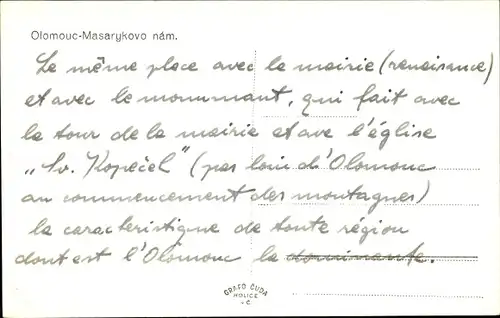 Olomouc-Masarykovo nám.
Le même place avec la mairie (renaisance)
et avec le monumant, qui fait avec
la tour de la mairie et ave l'église
„Sv. Kopeček" (pas loin d'Olomouc
au commencement des montagnes)
la caracteristigne de toute région
dont est l'Olomouc la dominante.
GRAFO ČUDA
HOLICE